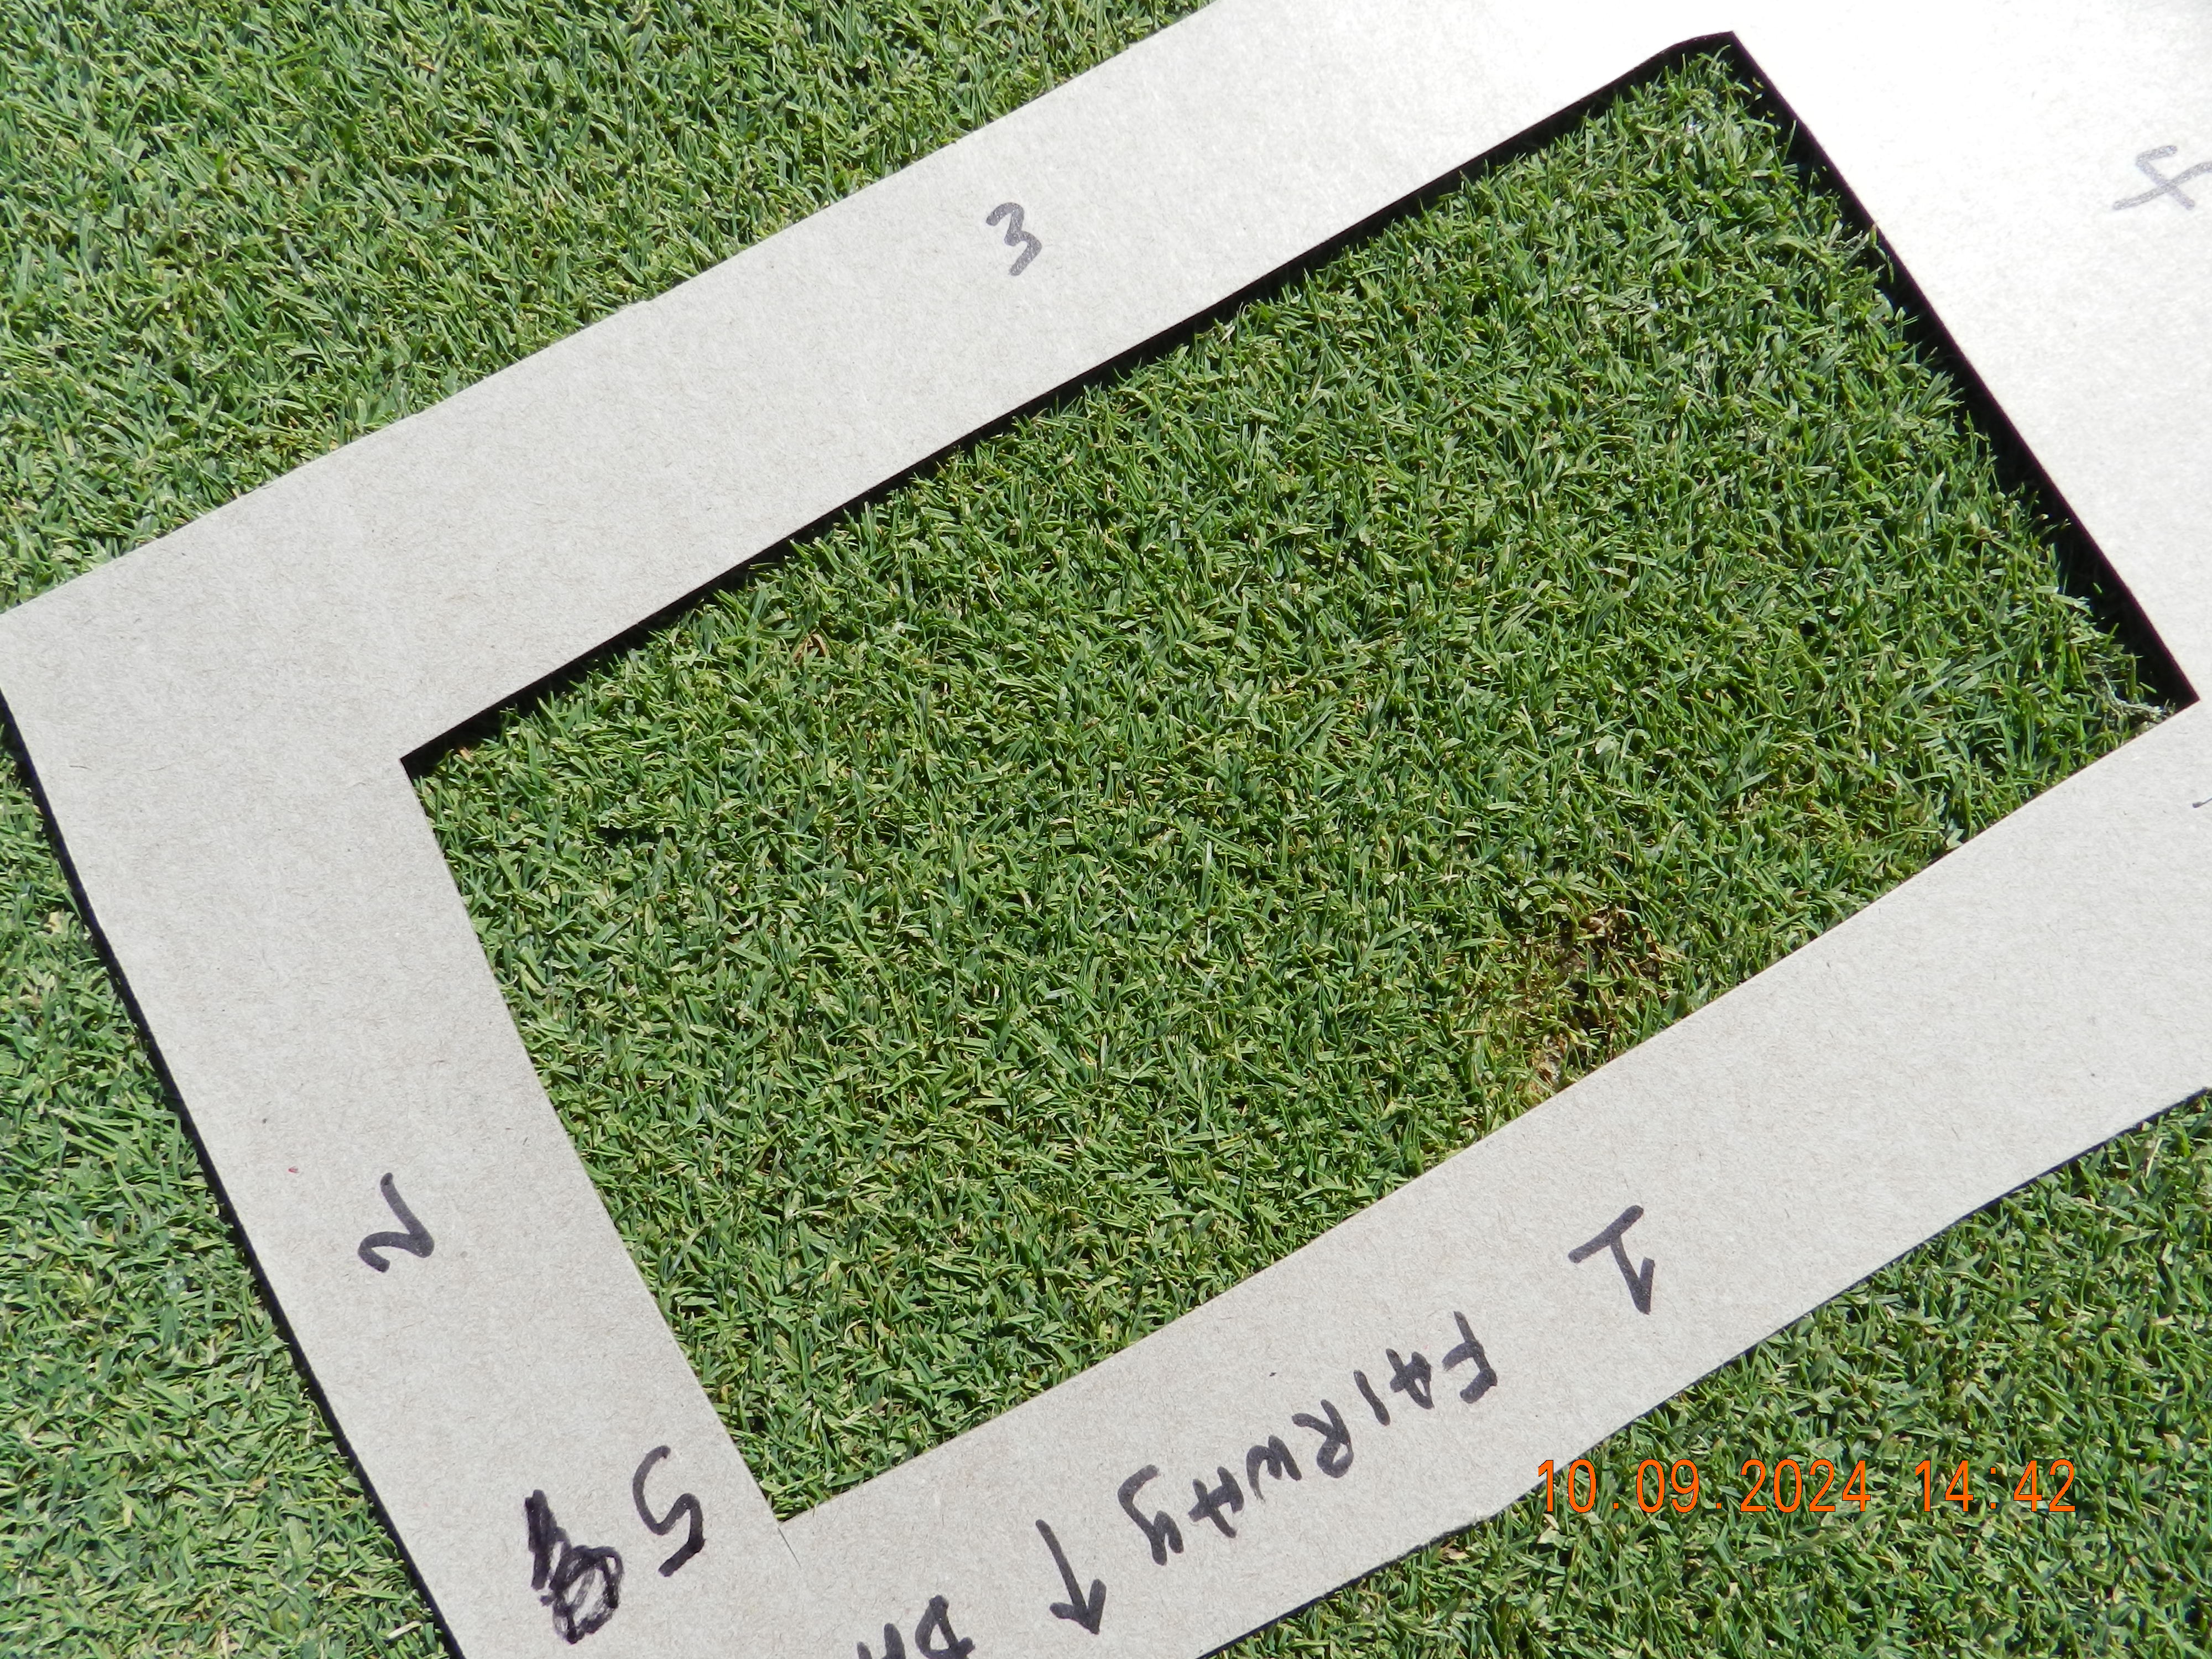 3
4
2
1
FAIRWAY ↑
5
10.09.2024 14:42